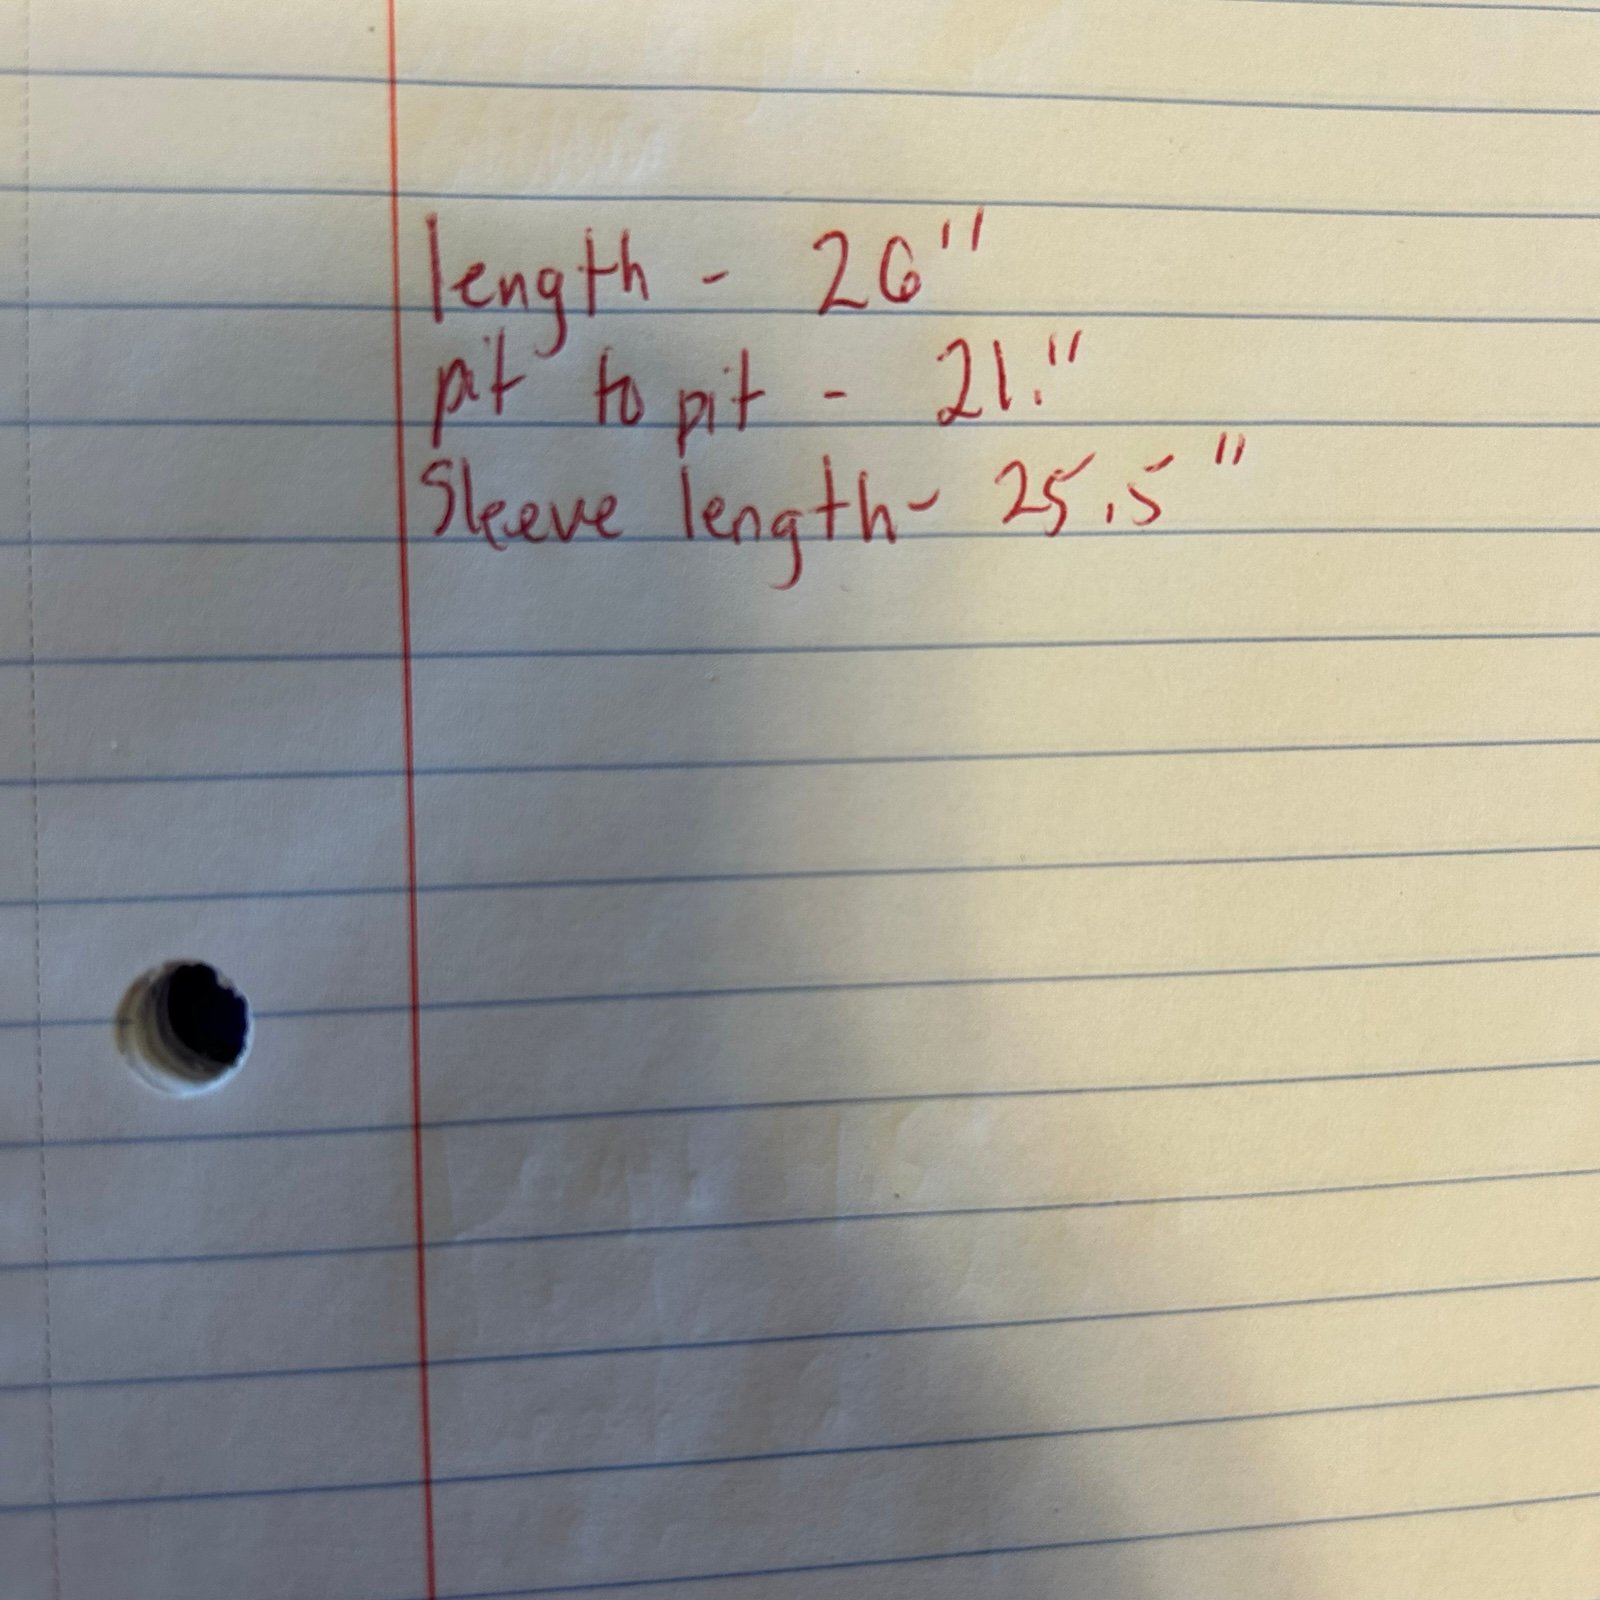 length - 26"
pit to pit - 21."
Sleeve length - 25.5"